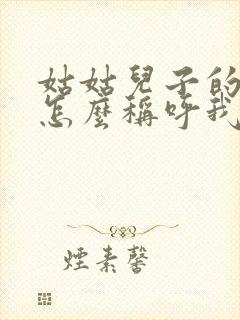 姑姑兒子的
怎麼稱呼我
煙素馨